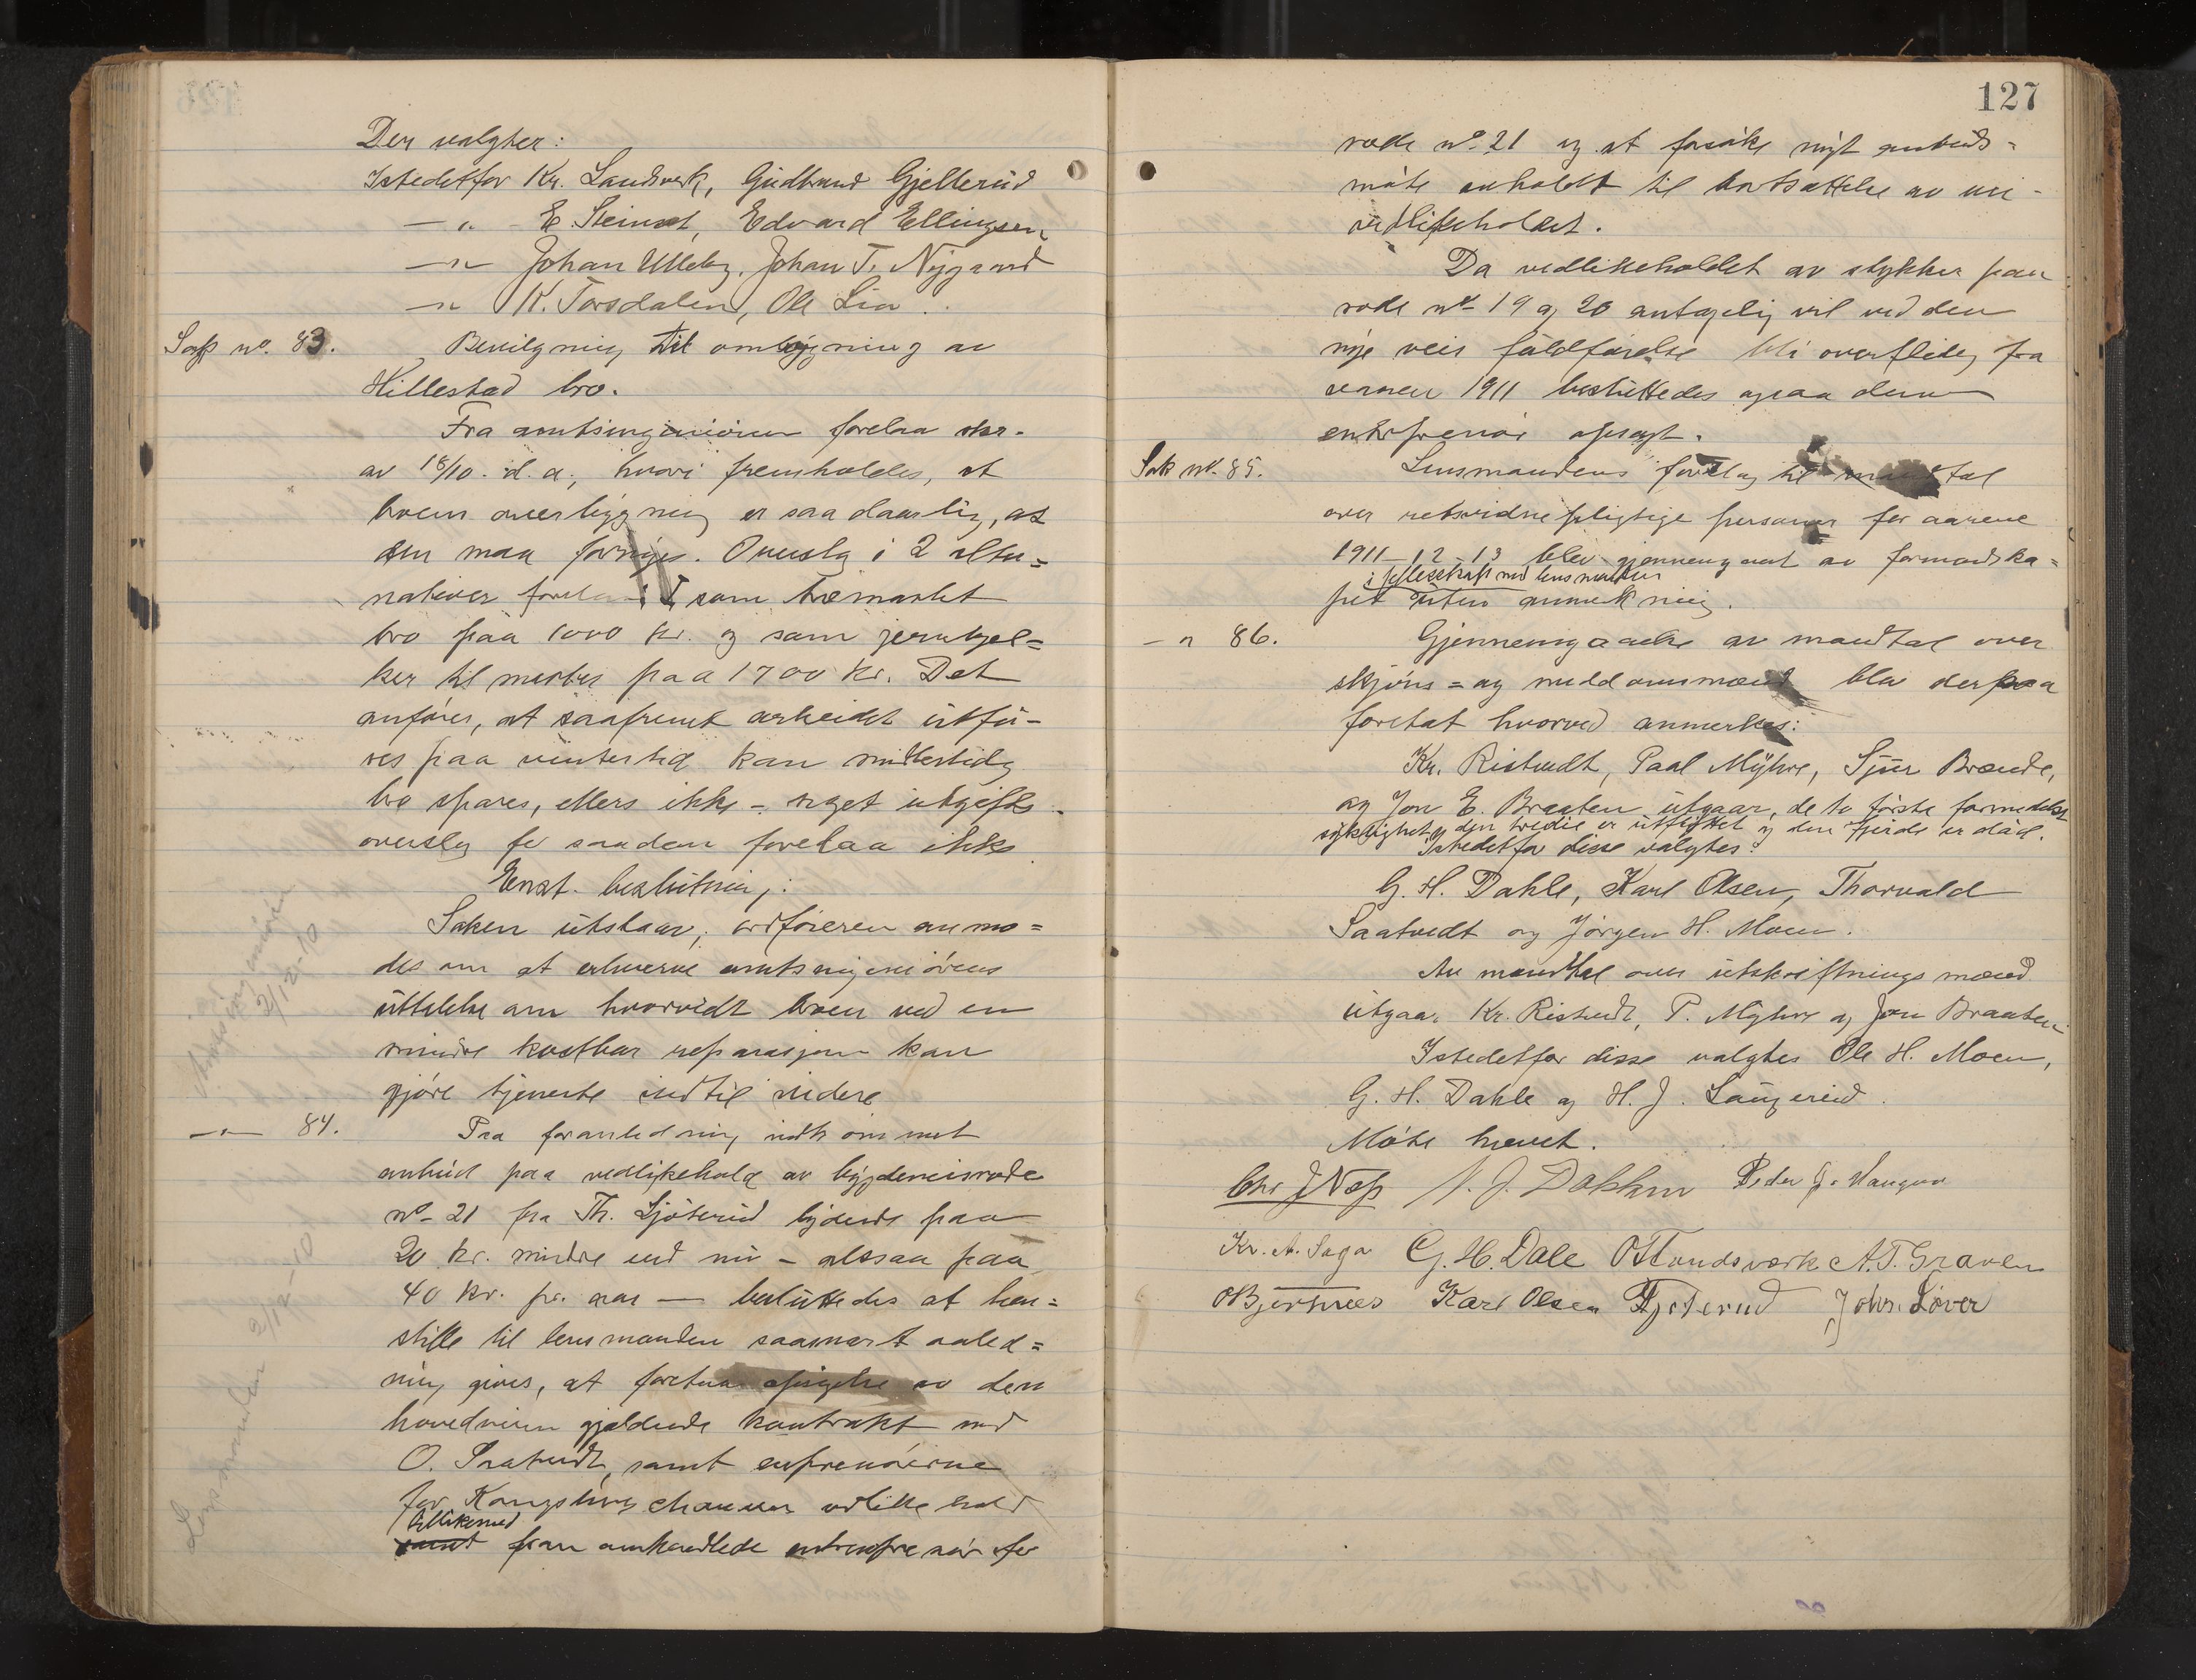 Der valgtes:
Istedetfor Kr. Landsverk, Gudbrand Gjellerud
—"— E Steinset, Edvard Ellingsen
—"— Johan Ulleby, Johan T. Nygaard
—"— K. Torsdalen, Ole Lia.
Sak no. 83. Bevilgning til ombygning av
Hillestad bro.
Fra amtsingeniøren forelaa skr.
av 18/10. d. a., hvori fremholdes, at
broens overbygning er saa daarlig, at
den maa fornyes. Overslag i 2 alter=
nativer forelaa; I som træmarket
bro paa 1000 kr. og som jernbjel=
ker til paa 1700 kr. Det
anføres, at saafremt arbeidet utfø-
res paa vintertid kan midlertidig
bro spares, ellers ikke – noget utgifts-
overslag for saadan forelaa ikke
Enst. beslutning:
Saken utstaar; ordføreren anmo=
des om at erhverve amtsingeniørens
uttalelse om hvorvidt broen ved en
mindre kostbar reparasjon kan
gjøre tjeneste indtil videre
—"— 84. Paa foranledning indkommet
anbud paa vedlikehold av bygdeveisrode
no- 21 fra Th. Ljøterud lydende paa
20 kr. mindre end nu – altsaa paa
40 kr. pr. aar — besluttedes at hen=
stille til lensmanden saasnart anled=
ning gives, at foretaa opsigelse av den
hovedveien gjældende kontrakt med
O. Saatvedt, samt entreprenørerne
for Kongsberg chausseen vedlikehold
tillikemed
samt foran omhandlede entreprenør for
Amtsingeniøren
2/12-10
Lensmanden 2/12-10
127
rode no. 21 og at forsøke nyt anbuds=
møte anholdt til bortsættelse av vei-
vedlikeholdet.
Da vedlikeholdet av stykker paa
rode no- 19 og 20 antagelig vil ved den
nye veis fuldførelse bli overflødig fra
1911 besluttedes ogsaa denne
entreprenør opsagt.
Sak no. 85. Lensmandens forslag til mandtal
over retsvidnepligtige personer for aarene
1911-12-13 blev gjennemgaat av formandska=
i fellesskap med lensmanden
pet uten anmerkning.
—"— 86. Gjennemgaaelse av mandtal over
skjøns= og meddomsmænd blev derpaa
foretat hvorved anmerkes:
Kr. Ristvedt, Paal Myhre, Sjur Brænde,
og Jon E. Braaten utgaar, de to første formedelst
sykelighet, den tredie er utflyttet og den fjerde er død.
Istedetfor disse valgtes:
G. H. Dahle, Karl Olsen, Thorvald
Saatvedt og Jørgen H. Moen.
Av mandtal over utskiftningsmænd
utgaar Kr. Ristvedt, P. Myhre og Jon Braaten
Istedetfor disse valgtes Ole H. Moen,
G. H. Dahle og H. J. Laugerud.
Møte hævet.
Chr J Næss N. J. Dokken Peder J.
Kr. A. Saga G. H. Dale O T Landsverk A. T. Graven
O Bjertnæs Karl Olsen Johs. Løver